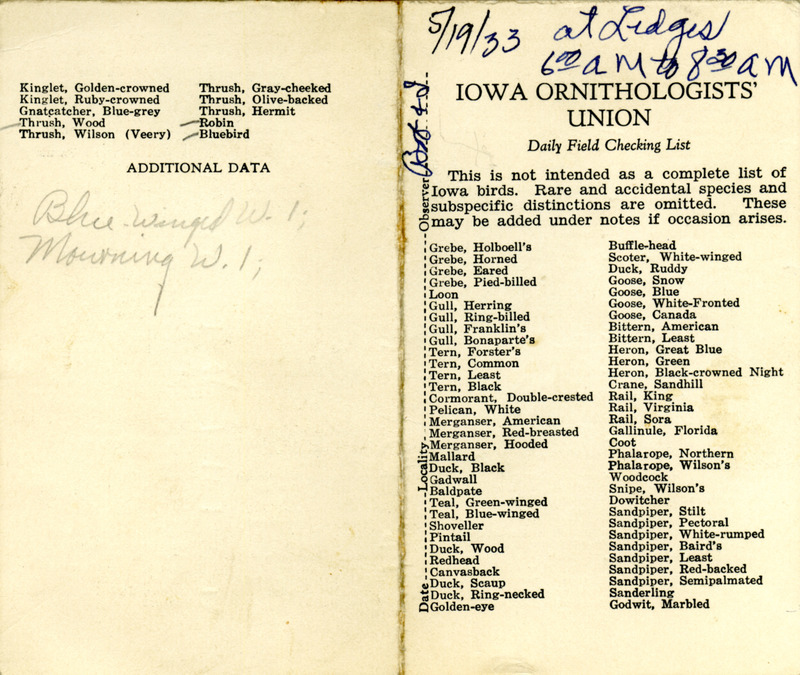 Kinglet, Golden-crowned
Kinglet, Ruby-crowned
Gnatcatcher, Blue-grey
Thrush, Wood
Thrush, Wilson (Veery)
Thrush, Gray-cheeked
Thrush, Olive-backed
Thrush, Hermit
Robin
Bluebird
ADDITIONAL DATA
Blue-winged W. 1;
Mourning W. 1;
5/19/33 at Ledges
6:00 AM to 8:30 AM
IOWA ORNITHOLOGISTS'
UNION
Daily Field Checking List
This is not intended as a complete list of
Iowa birds. Rare and accidental species and
subspecific distinctions are omitted. These
may be added under notes if occasion arises.
Date Locality Observer
Grebe, Holboell's
Grebe, Horned
Grebe, Eared
Grebe, Pied-billed
Loon
Gull, Herring
Gull, Ring-billed
Gull, Franklin's
Gull, Bonaparte's
Tern, Forster's
Tern, Common
Tern, Least
Tern, Black
Cormorant, Double-crested
Pelican, White
Merganser, American
Merganser, Red-breasted
Merganser, Hooded
Mallard
Duck, Black
Gadwall
Baldpate
Teal, Green-winged
Teal, Blue-winged
Shoveller
Pintail
Duck, Wood
Redhead
Canvasback
Duck, Scaup
Duck, Ring-necked
Golden-eye
Buffle-head
Scoter, White-winged
Duck, Ruddy
Goose, Snow
Goose, Blue
Goose, White-Fronted
Goose, Canada
Bittern, American
Bittern, Least
Heron, Great Blue
Heron, Green
Heron, Black-crowned Night
Crane, Sandhill
Rail, King
Rail, Virginia
Rail, Sora
Gallinule, Florida
Coot
Phalarope, Northern
Phalarope, Wilson's
Woodcock
Snipe, Wilson's
Dowitcher
Sandpiper, Stilt
Sandpiper, Pectoral
Sandpiper, White-rumped
Sandpiper, Baird's
Sandpiper, Least
Sandpiper, Red-backed
Sandpiper, Semipalmated
Sanderling
Godwit, Marbled